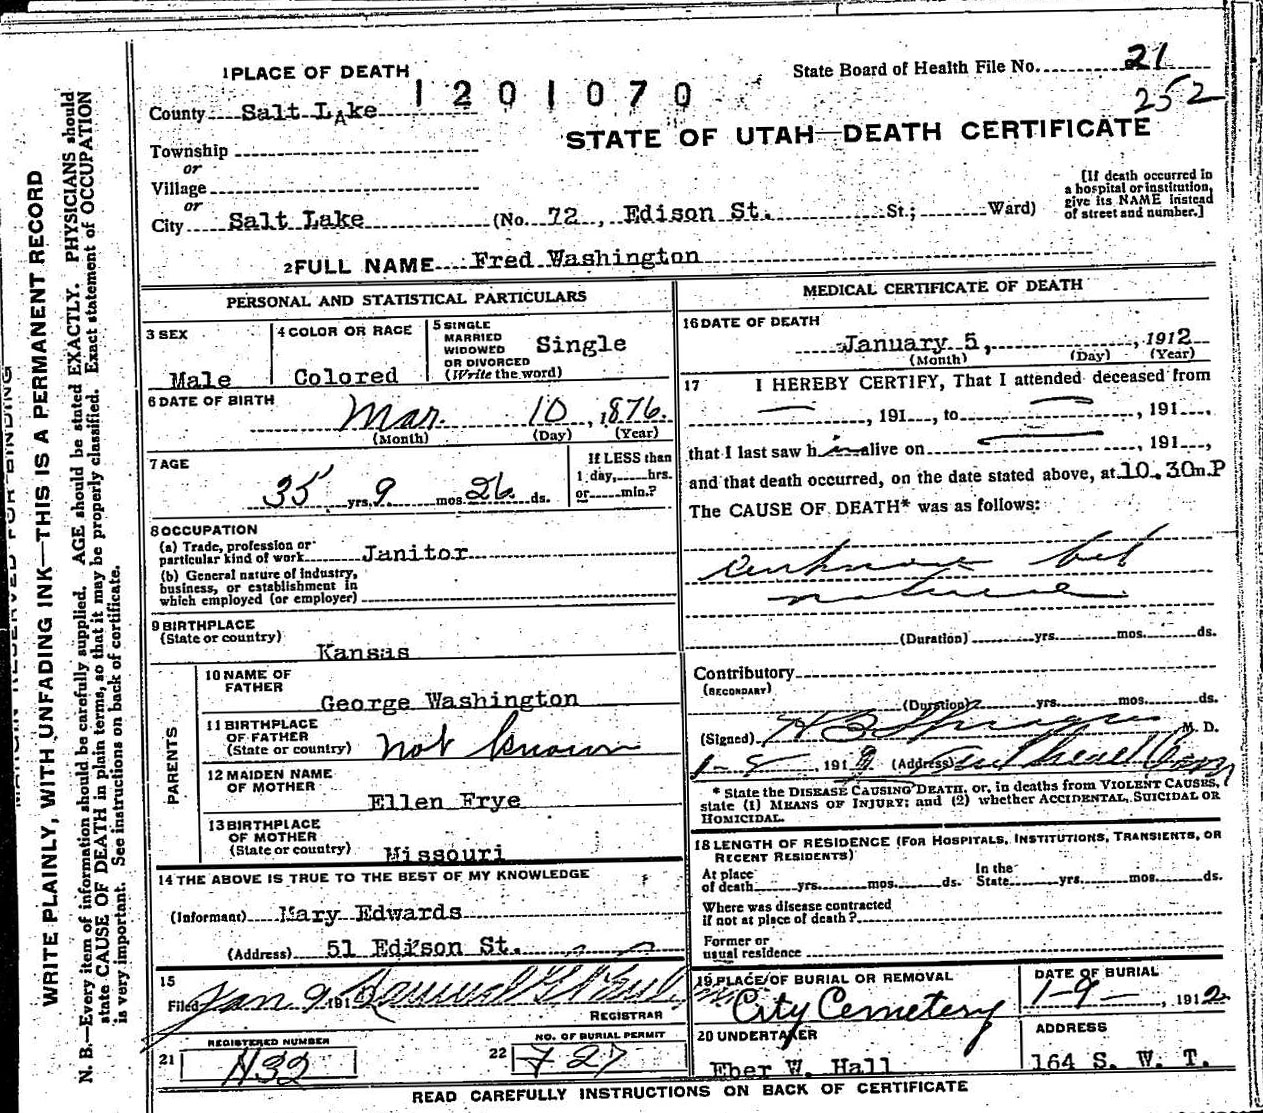 1 PLACE OF DEATH
1201070
State Board of Health File No. 21
252
County Salt LAke
STATE OF UTAH—DEATH CERTIFICATE
Township
or
Village
or
City Salt Lake (No. 72, Edison St. St.; Ward)
[If death occurred in
a hospital or institution,
give its NAME instead
of street and number.]
2 FULL NAME Fred Washington
PERSONAL AND STATISTICAL PARTICULARS
3 SEX
Male
4 COLOR OR RACE
Colored
5 SINGLE
MARRIED
WIDOWED
OR DIVORCED
(Write the word)
Single
6 DATE OF BIRTH
Mar. 10, 1876.
(Month) (Day) (Year)
7 AGE
35 yrs. 9 mos. 26 ds.
If LESS than
1 day, hrs.
or min.?
8 OCCUPATION
(a) Trade, profession or
particular kind of work Janitor
(b) General nature of industry,
business, or establishment in
which employed (or employer)
9 BIRTHPLACE
(State or country)
Kansas
PARENTS
10 NAME OF
FATHER
George Washington
11 BIRTHPLACE
OF FATHER
(State or country) not known
12 MAIDEN NAME
OF MOTHER
Ellen Frye
13 BIRTHPLACE
OF MOTHER
(State or country) Missouri
14 THE ABOVE IS TRUE TO THE BEST OF MY KNOWLEDGE
(Informant) Mary Edwards
(Address) 51 Edison St.
15
Filed Jan 9 191
REGISTRAR
REGISTERED NUMBER
21
NO. OF BURIAL PERMIT
22 727
MEDICAL CERTIFICATE OF DEATH
16 DATE OF DEATH
January 5, , 1912
(Month) (Day) (Year)
17 I HEREBY CERTIFY, That I attended deceased from
— , 191 , to — , 191 ,
that I last saw him alive on — , 191 ,
and that death occurred, on the date stated above, at 10.30 m. P
The CAUSE OF DEATH* was as follows:
unknown but
natural
(Duration) yrs. mos. ds.
Contributory
(SECONDARY)
(Duration) yrs. mos. ds.
(Signed) M. D.
191 (Address)
* State the DISEASE CAUSING DEATH, or, in deaths from VIOLENT CAUSES,
state (1) MEANS OF INJURY; and (2) whether ACCIDENTAL, SUICIDAL OR
HOMICIDAL.
18 LENGTH OF RESIDENCE (FOR HOSPITALS, INSTITUTIONS, TRANSIENTS, OR
RECENT RESIDENTS)
At place
of death yrs. mos. ds.
In the
State yrs. mos. ds.
Where was disease contracted
if not at place of death?
Former or
usual residence
19 PLACE OF BURIAL OR REMOVAL
City Cemetery
DATE OF BURIAL
1-9- , 1912
20 UNDERTAKER
Eber W. Hall
ADDRESS
164 S. W. T.
READ CAREFULLY INSTRUCTIONS ON BACK OF CERTIFICATE
WRITE PLAINLY, WITH UNFADING INK—THIS IS A PERMANENT RECORD
N. B.—Every item of information should be carefully supplied. AGE should be stated EXACTLY. PHYSICIANS should
state CAUSE OF DEATH in plain terms, so that it may be properly classified. Exact statement of OCCUPATION
is very important. See instructions on back of certificate.